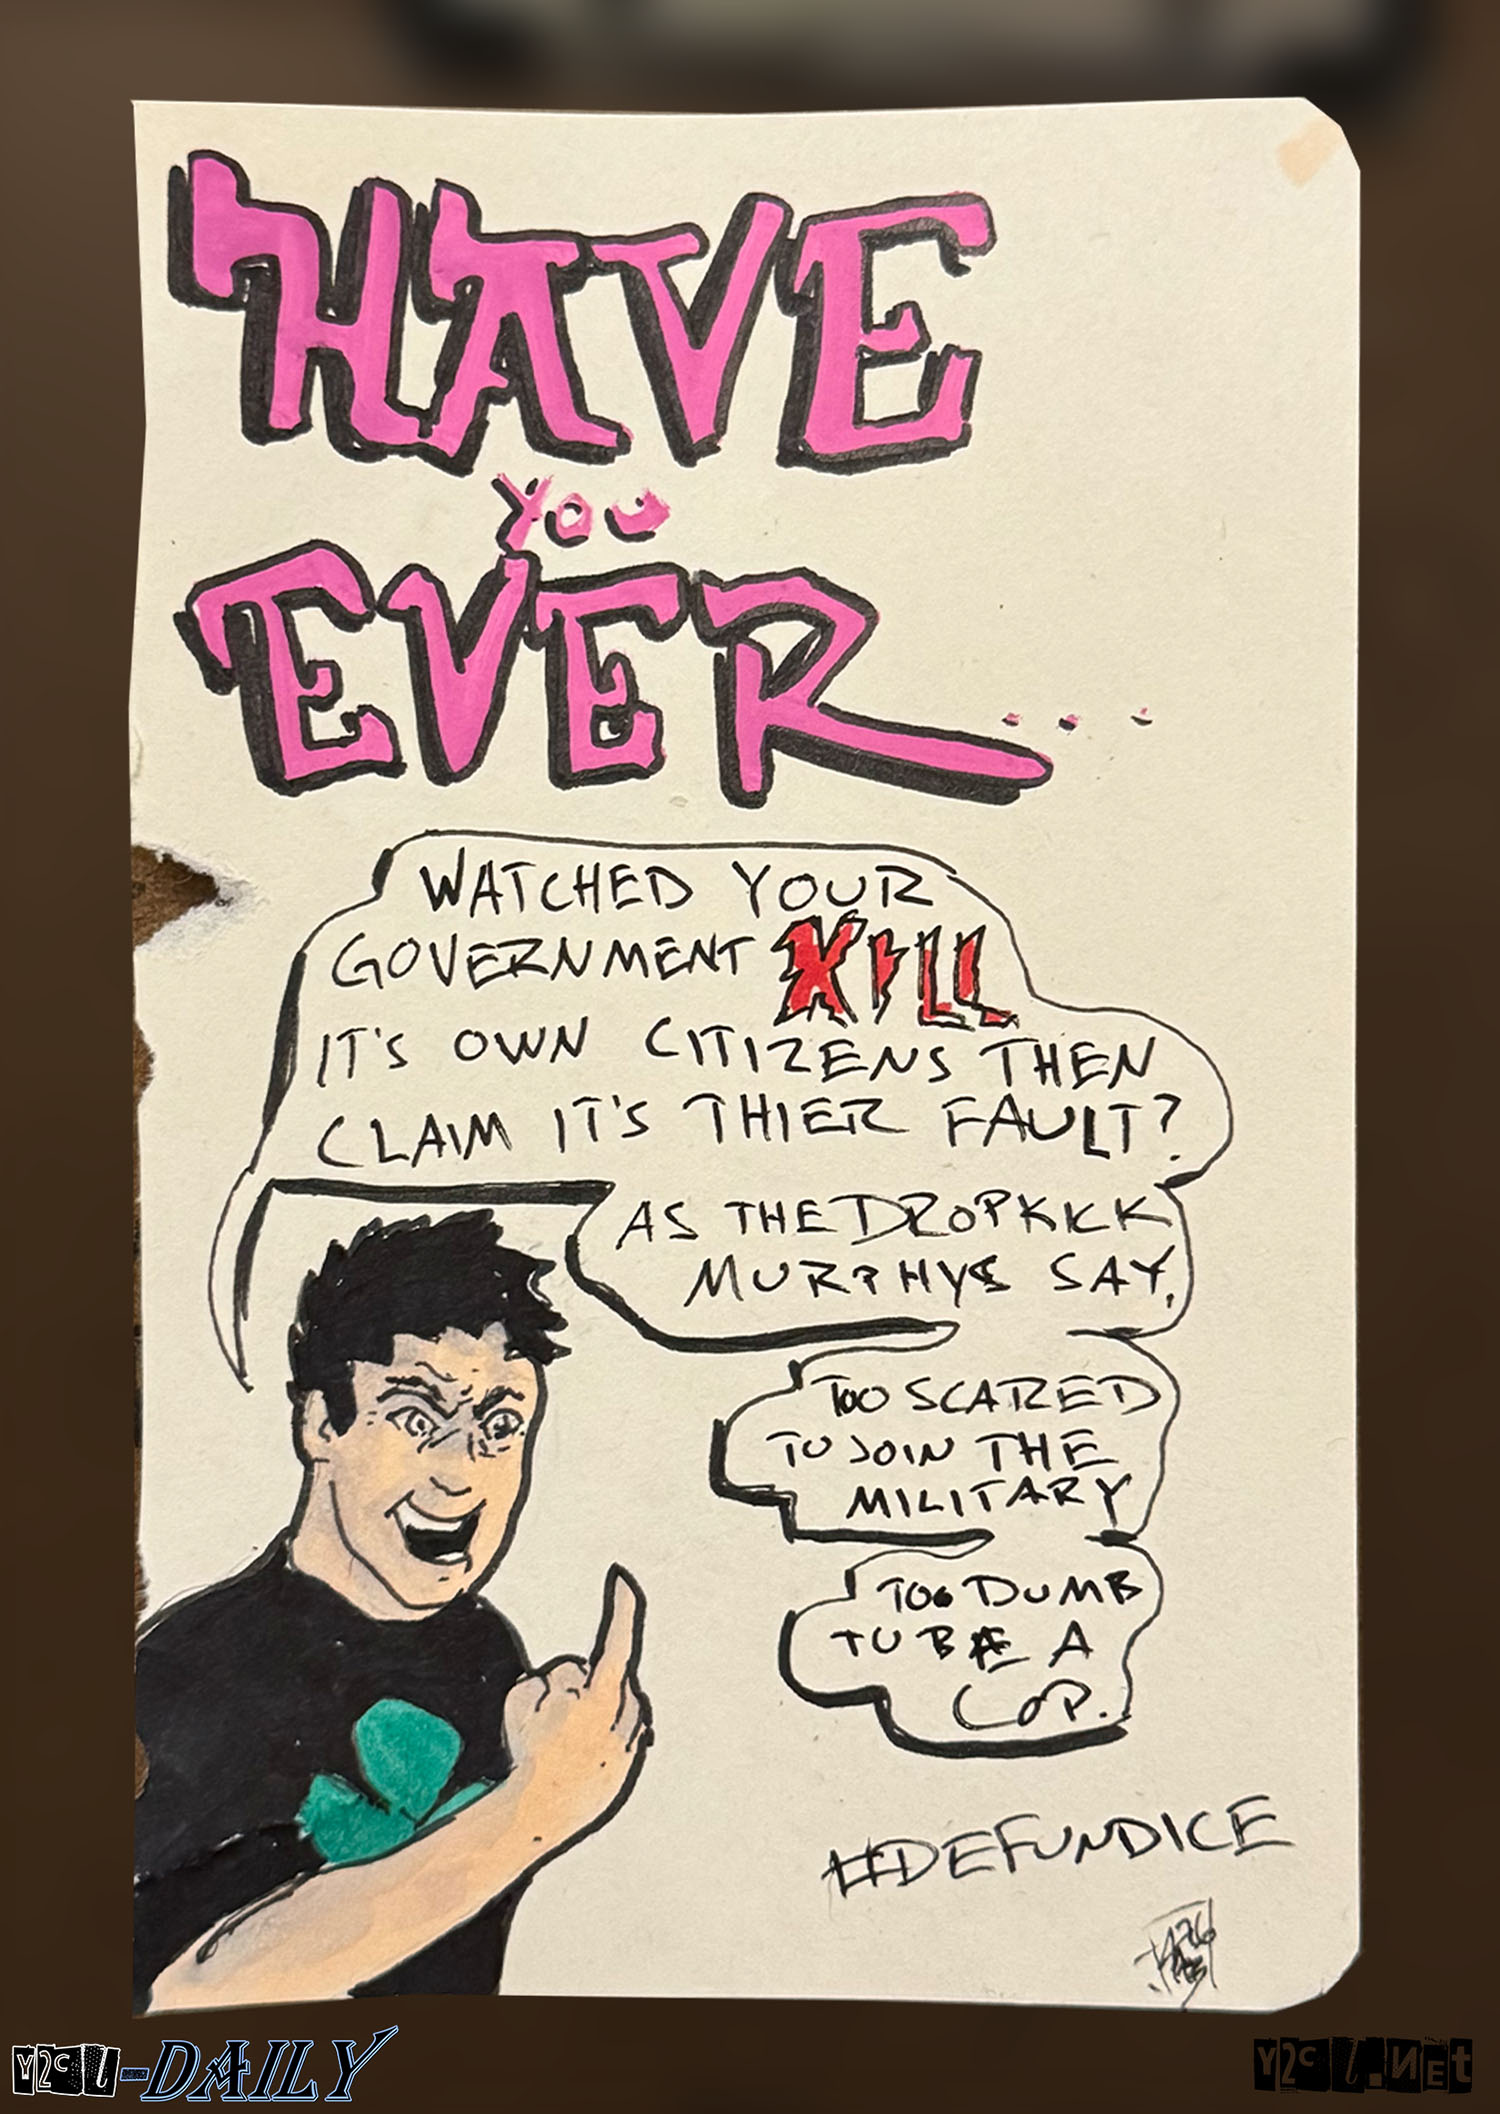 HAVE
YOU
EVER...
WATCHED YOUR
GOVERNMENT KILL
IT'S OWN CITIZENS THEN
CLAIM IT'S THIER FAULT?
AS THE DROPKICK
MURPHYS SAY,
TOO SCARED
TO JOIN THE
MILITARY
TOO DUMB
TO BE A
COP.
#DEFUNDICE
Y2CL-DAILY
Y2CL.NET